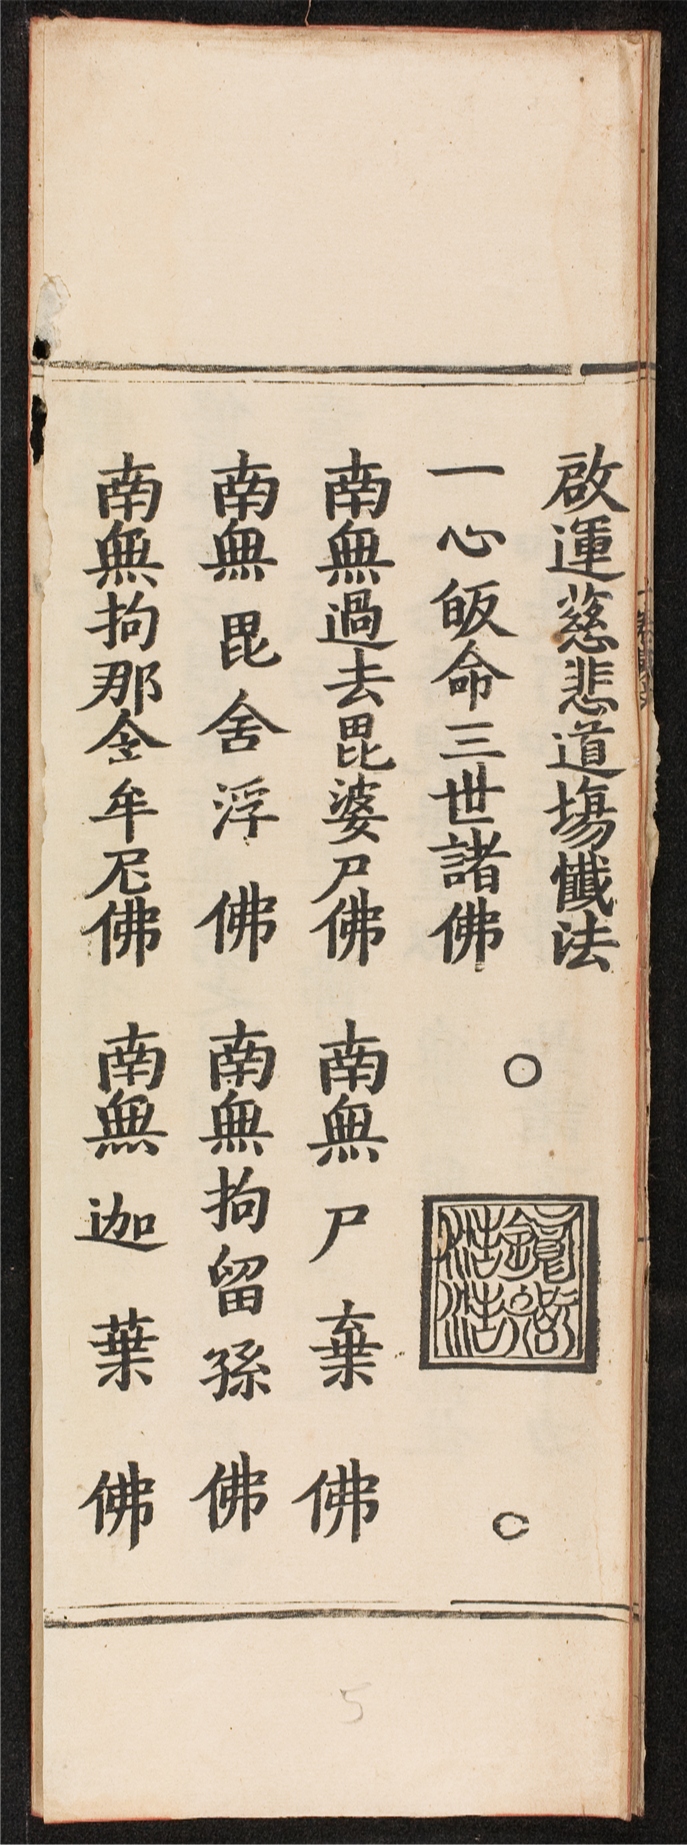 啟運慈悲道場懺法
一心皈命三世諸佛
南無過去毘婆尸佛 南無尸棄佛
南無毘舍浮佛 南無拘留孫佛
南無拘那含牟尼佛 南無迦葉佛
5